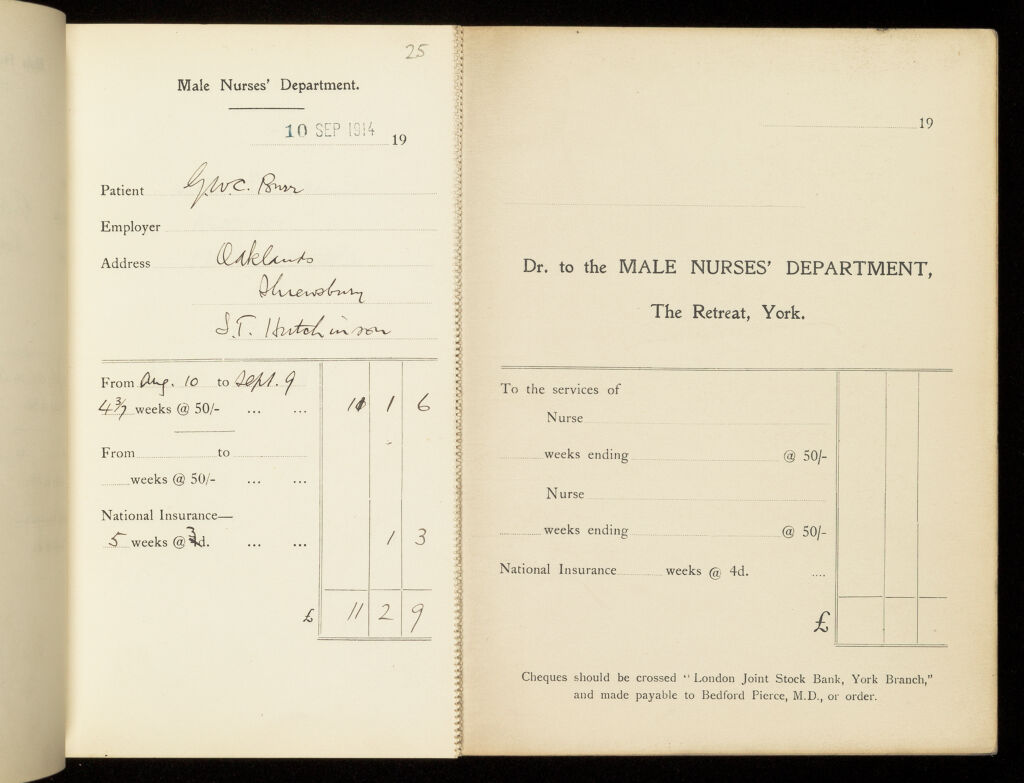 25
Male Nurses' Department.
10 SEP 1914 19
Patient G.W.C. Burr
Employer
Address Oaklands
Shrewsbury
S.T. Hutchinson
From Aug. 10 to Sept. 9
4 3/7 weeks @ 50/- ... ... 11 1 6
From to
weeks @ 50/- ... ...
National Insurance—
5 weeks @ 3d. ... ... 1 3
£ 11 2 9
19
Dr. to the MALE NURSES' DEPARTMENT,
The Retreat, York.
To the services of
Nurse
weeks ending @ 50/-
Nurse
weeks ending @ 50/-
National Insurance weeks @ 4d. ....
£
Cheques should be crossed "London Joint Stock Bank, York Branch,"
and made payable to Bedford Pierce, M.D., or order.